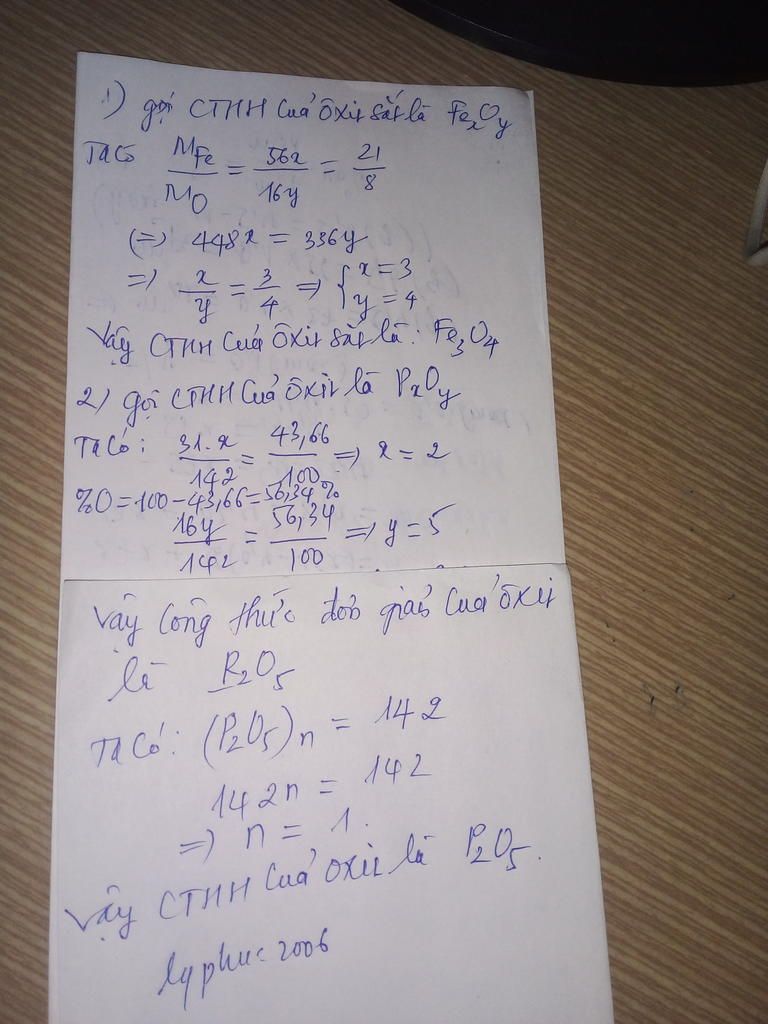 1) gọi CTHH của ôxit sắt là FexOy
Ta có MFe/MO = 56x/16y = 21/8
(=) 448x = 336y
=) x/y = 3/4 =) { x = 3 y = 4
Vậy CTHH của ôxit sắt là: Fe3O4
2) gọi CTHH của ôxit là PxOy
Ta có: 31.x/142 = 43,66/100 =) x = 2
%O = 100 - 43,66 = 56,34%
16y/142 = 56,34/100 =) y = 5
Vậy công thức đơn giản của ôxit
là P2O5
Ta có: (P2O5)n = 142
142n = 142
=) n = 1.
Vậy CTHH của ôxit là P2O5.
lyphuc2006